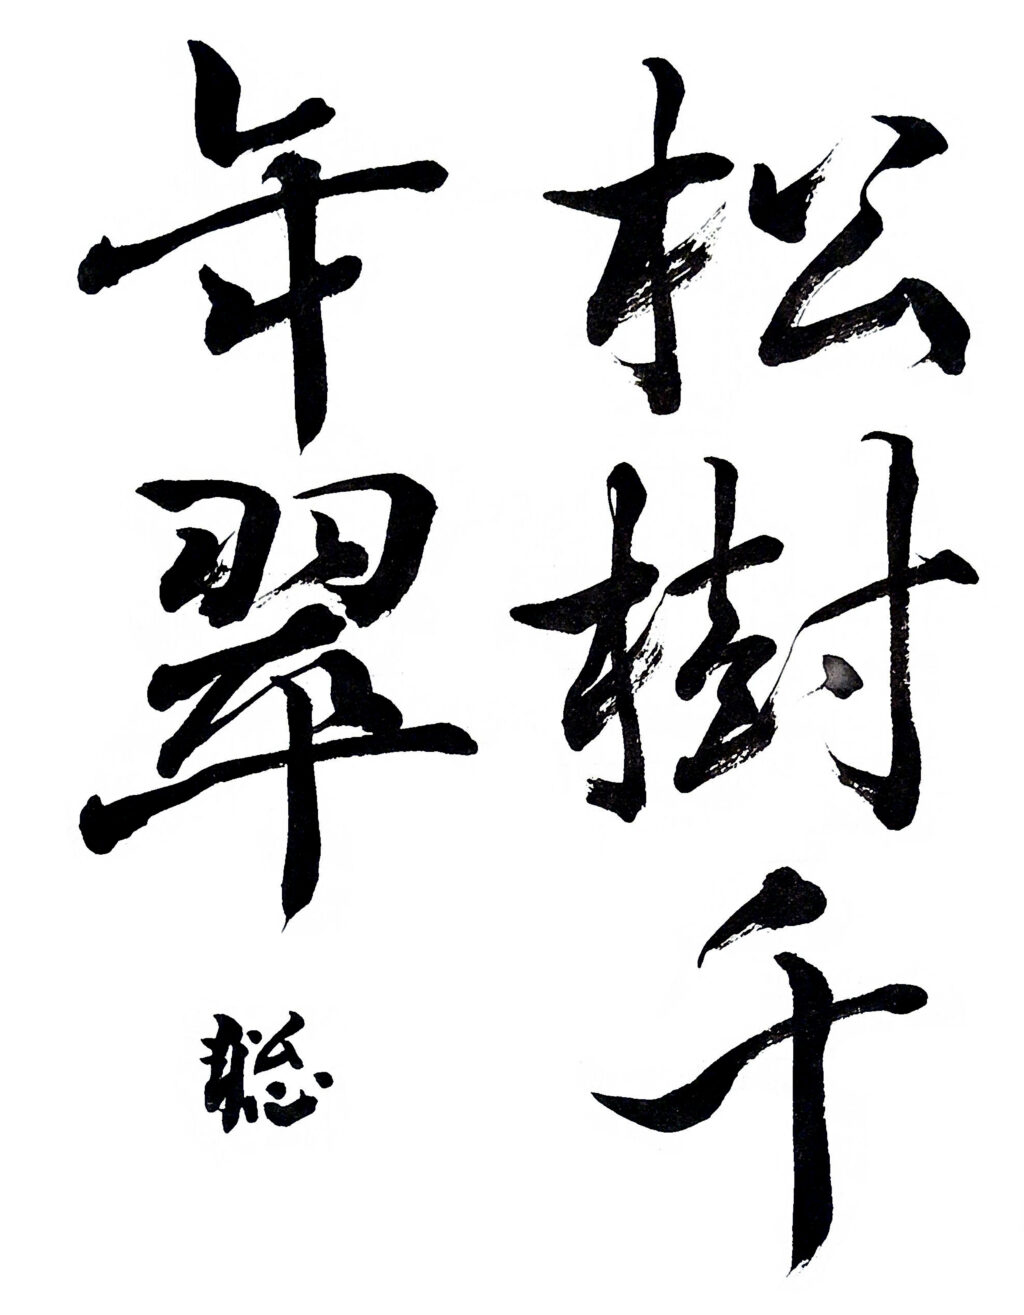 松樹千
年翠
聡